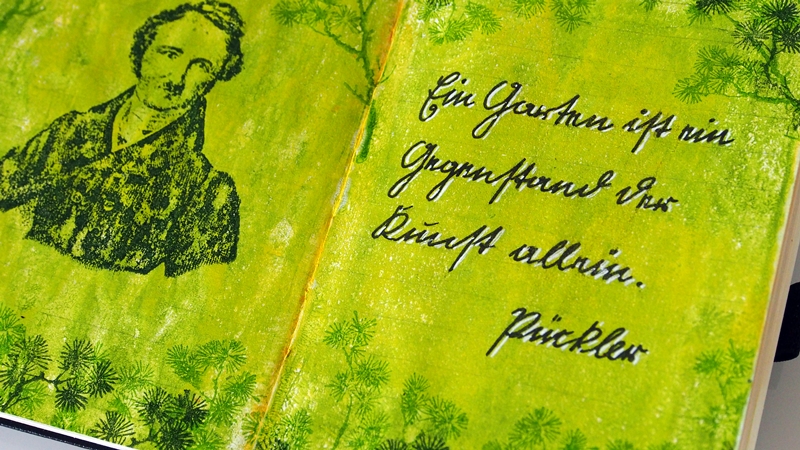 Ein Garten ist ein
Gegenstand der
Kunst allein.
Pückler